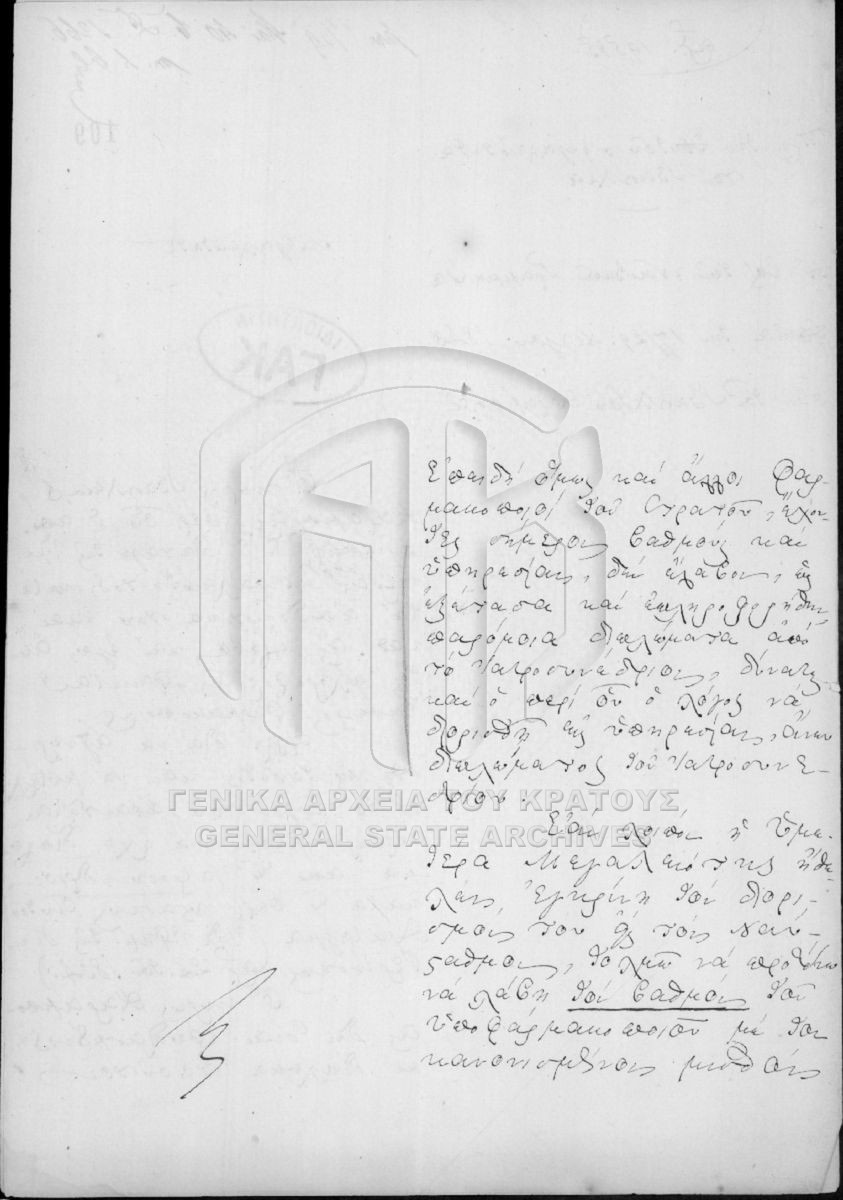 Ἐπειδή ὅμως καί ἄλλοι Φαρ-
μακοποιοί τοῦ Στρατοῦ, ἔχον-
τες σήμερον βαθμούς καί
ὑπηρεσίαν, δέν ἔλαβον, ὡς
ἐξέτασα καί ἐπληροφορήθην,
παρόμοια διπλώματα ἀπό
τό Ἰατροσυνέδριον, δύναται
καί ὁ περί οὗ ὁ λόγος νά
διορισθῇ εἰς ὑπηρεσίαν, ἄνευ
διπλώματος τοῦ Ἰατροσυνε-
δρίου.
Ἐάν λοιπόν ἡ Ὑμε-
τέρα Μεγαλειότης ἤθε-
λεν ἐγκρίνῃ τόν διορι-
σμόν του εἰς τόν Ναύ-
σταθμον, τολμῶ νά προτείνω
νά λάβῃ τόν βαθμόν τοῦ
ὑποφαρμακοποιοῦ μέ τόν
κανονισμένον μισθόν
ΓΕΝΙΚΑ ΑΡΧΕΙΑ ΤΟΥ ΚΡΑΤΟΥΣ
GENERAL STATE ARCHIVES
ΓΑΚ
109